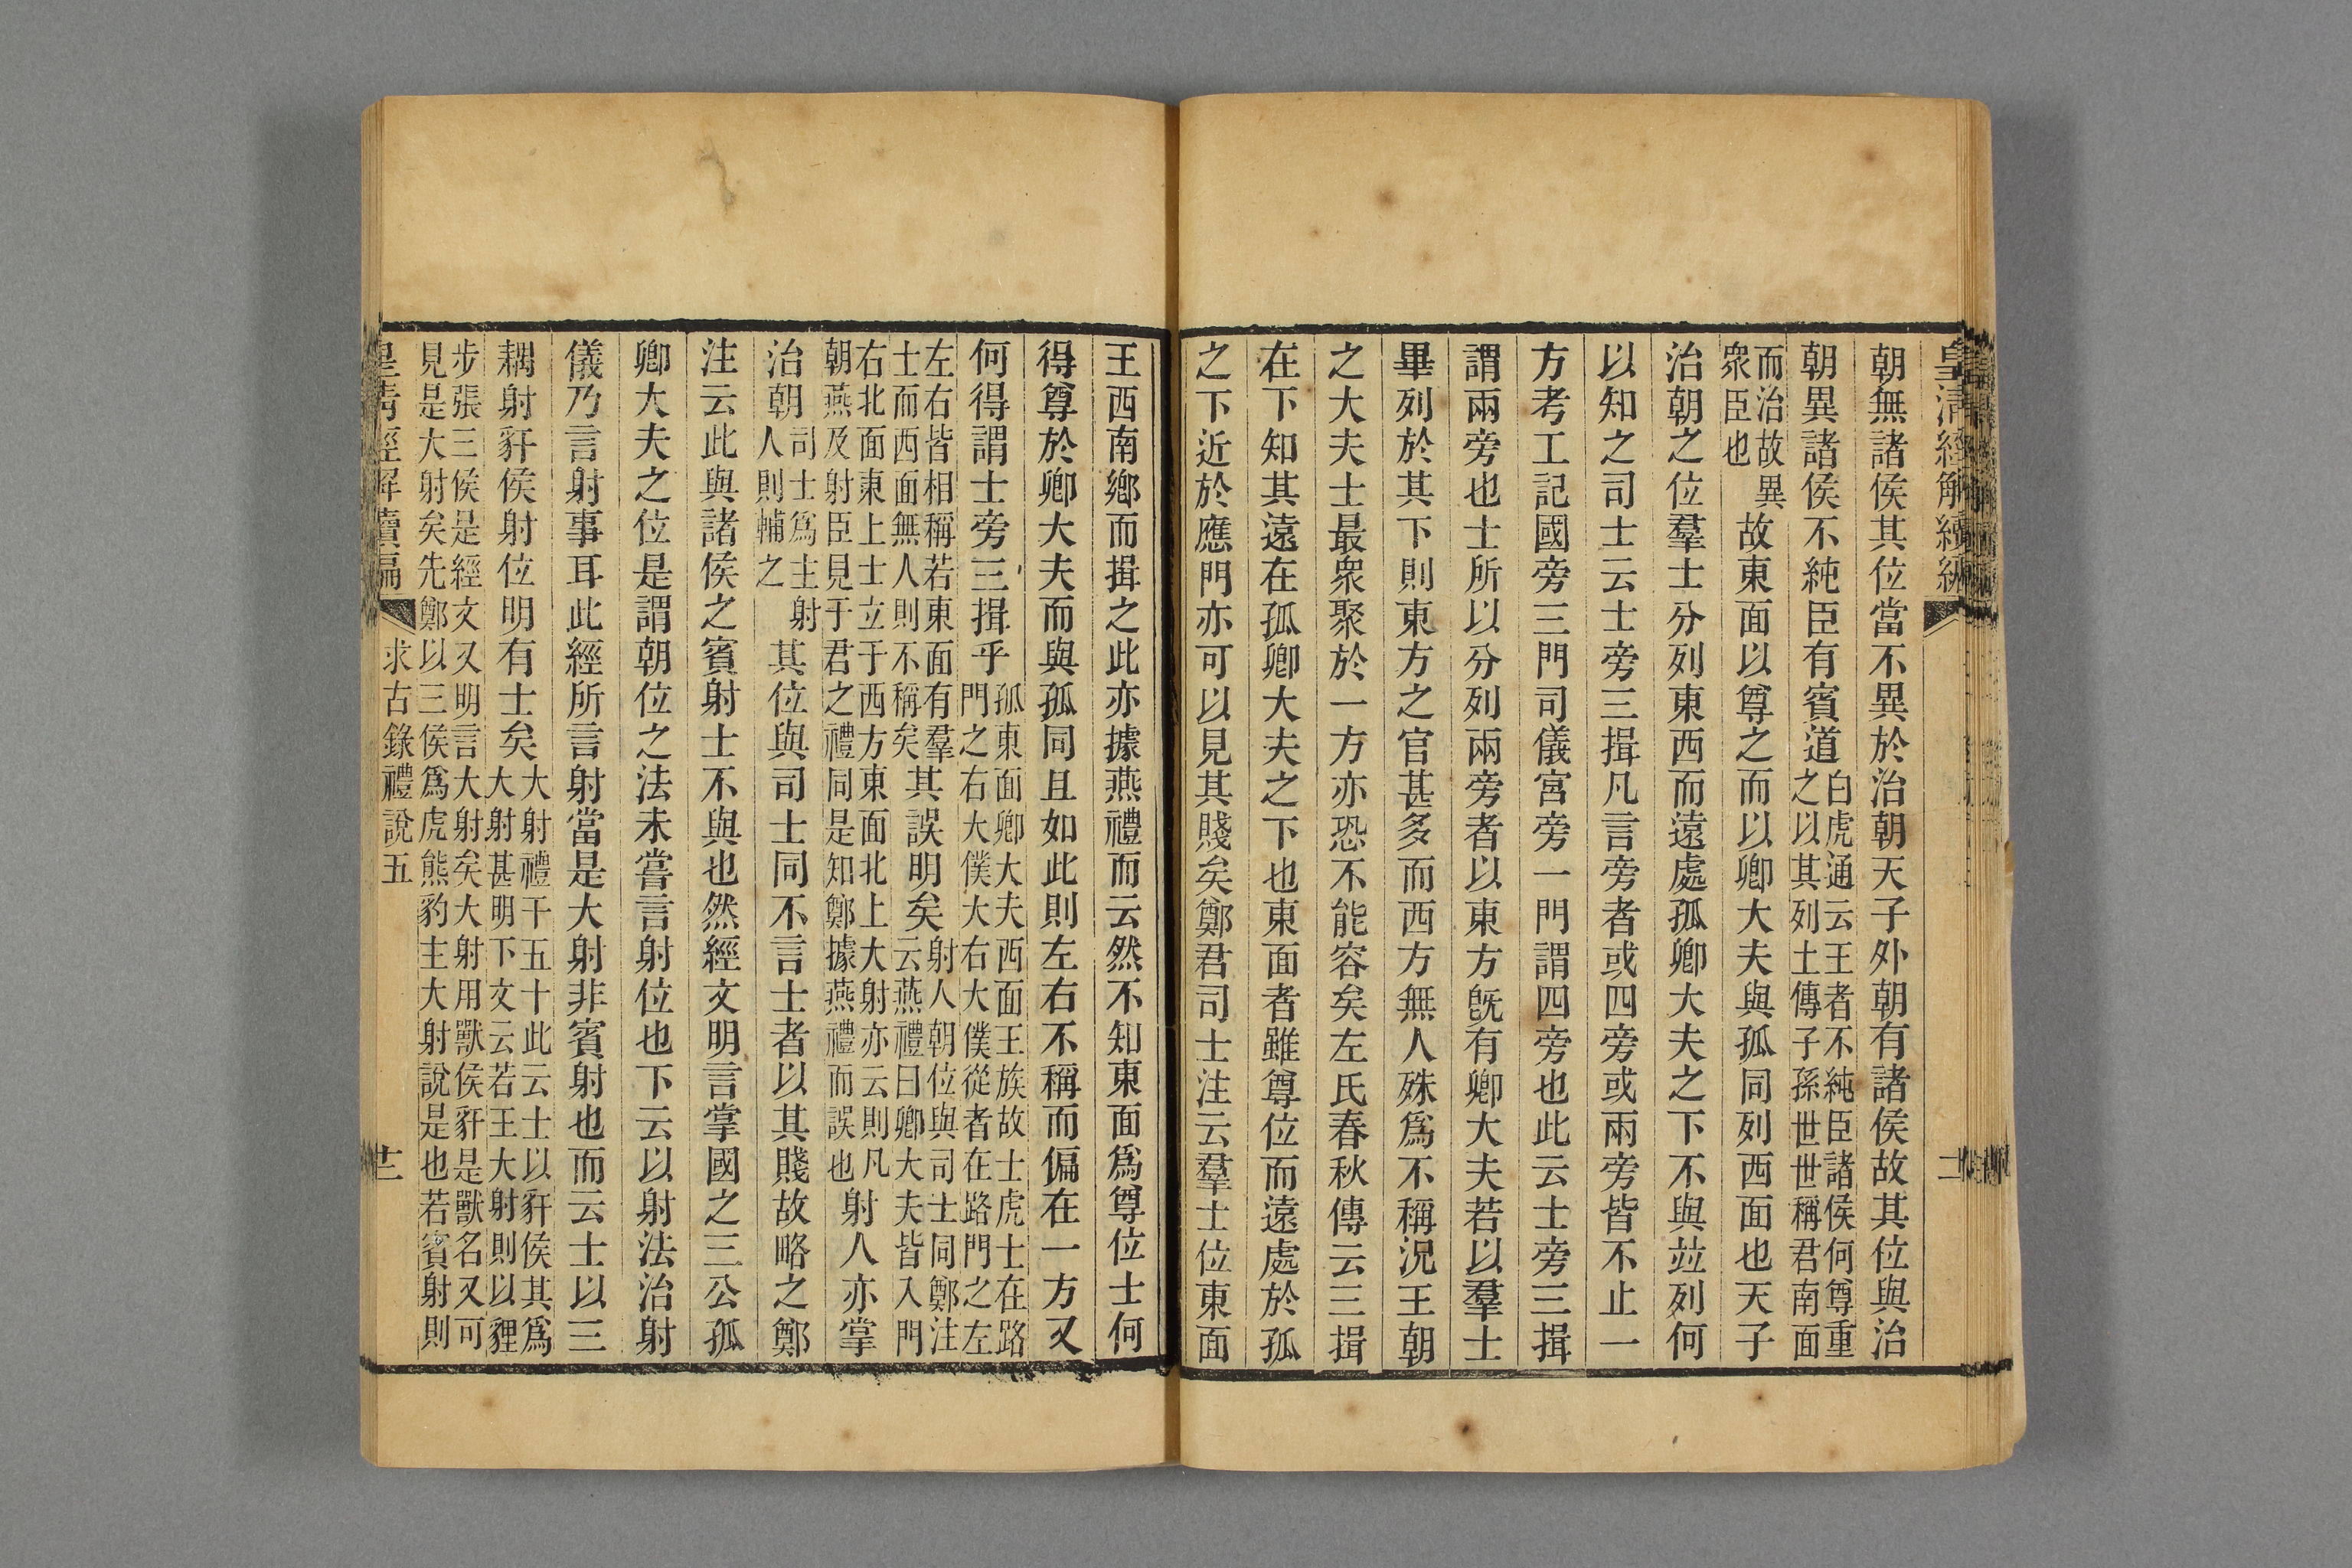 皇清經解續編
二
朝無諸侯其位當不異於治朝天子外朝有諸侯故其位與治
朝異諸侯不純臣有賓道
白虎通云王者不純臣諸侯何尊重
之以其列土傳子孫世世稱君南面
而治故異
衆臣也
故東面以尊之而以卿大夫與孤同列西面也天子
治朝之位羣士分列東西而遠處孤卿大夫之下不與竝列何
以知之司士云士旁三揖凡言旁者或四旁或兩旁皆不止一
方考工記國旁三門司儀宮旁一門謂四旁也此云士旁三揖
謂兩旁也士所以分列兩旁者以東方旣有卿大夫若以羣士
畢列於其下則東方之官甚多而西方無人殊爲不稱況王朝
之大夫士最衆聚於一方亦恐不能容矣左氏春秋傳云三揖
在下知其遠在孤卿大夫之下也東面者雖尊位而遠處於孤
之下近於應門亦可以見其賤矣鄭君司士注云羣士位東面
王西南鄉而揖之此亦據燕禮而云然不知東面爲尊位士何
得尊於卿大夫而與孤同且如此則左右不稱而偏在一方又
何得謂士旁三揖乎
孤東面卿大夫西面王族故士虎士在路
門之右大僕大右大僕從者在路門之左
左右皆相稱若東面有羣
士而西面無人則不稱矣
其誤明矣
射人朝位與司士同鄭注
云燕禮曰卿大夫皆入門
右北面東上士立于西方東面北上大射亦云則凡
朝燕及射臣見于君之禮同是知鄭據燕禮而誤也
射人亦掌
治朝
司士爲主射
人則輔之
其位與司士同不言士者以其賤故略之鄭
注云此與諸侯之賓射士不與也然經文明言掌國之三公孤
卿大夫之位是謂朝位之法未嘗言射位也下云以射法治射
儀乃言射事耳此經所言射當是大射非賓射也而云士以三
耦射豻侯射位明有士矣
大射禮干五十此云士以豻侯其爲
大射甚明下文云若王大射則以貍
步張三侯是經文又明言大射矣大射用獸侯豻是獸名又可
見是大射矣先鄭以三侯爲虎熊豹主大射說是也若賓射則
皇清經解續編
求古錄禮說五